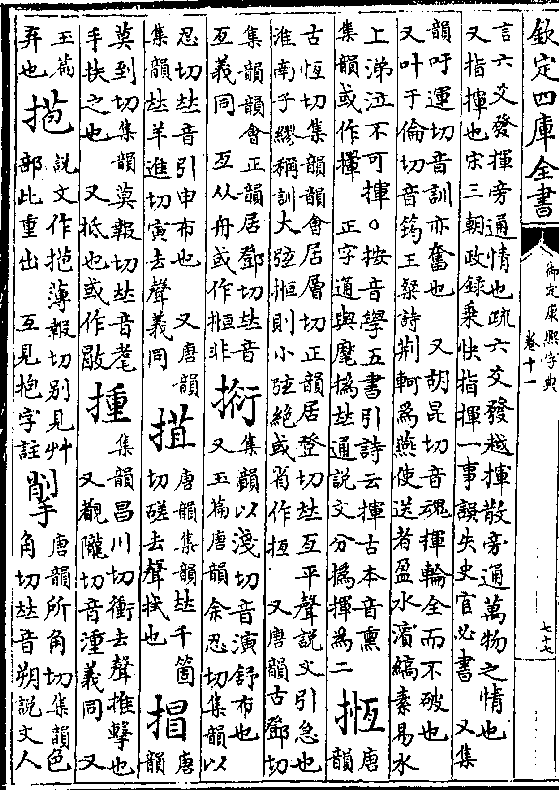 欽定四庫全書
御定康熙字典
卷十一
七十七
言六爻發揮旁通情也疏六爻發越揮散旁通萬物之情也
又指揮也宋三朝政録乗快指揮一事誤失史官必書 又集
韻吁運切音訓亦奮也 又胡昆切音魂揮輪全而不破也
又叶于倫切音筠王粲詩荆軻為燕使送者盈水濱縞素易水
上涕泣不可揮○按音學五書引詩云揮古本音熏
集韻或作揮 正字通與麾撝𠀤通說文分撝揮為二
揯
唐
韻
古恆切集韻韻會居層切正韻居登切𠀤亙平聲說文引急也
淮南子繆稱訓大弦揯則小弦絶或省作搄 又唐韻古鄧切
集韻韻會正韻居鄧切𠀤音
亙義同 亙从舟或作搄非
集韻以淺切音演舒布也
又玉篇唐韻余忍切集韻以
忍切𠀤音引申布也 又唐韻
集韻𠀤羊進切寅去聲義同
唐韻集韻𠀤千箇
切磋去聲拭也
唐
韻
莫到切集韻莫報切𠀤音耄
手扶之也 又抵也或作㪞
揰
集韻昌用切衝去聲推擊也
又覩隴切音湩義同 又
玉篇
弃也
菢
說文作菢薄報切别見艸
部此重出 互見抱字註
揱
唐韻所角切集韻色
角切𠀤音朔說文人